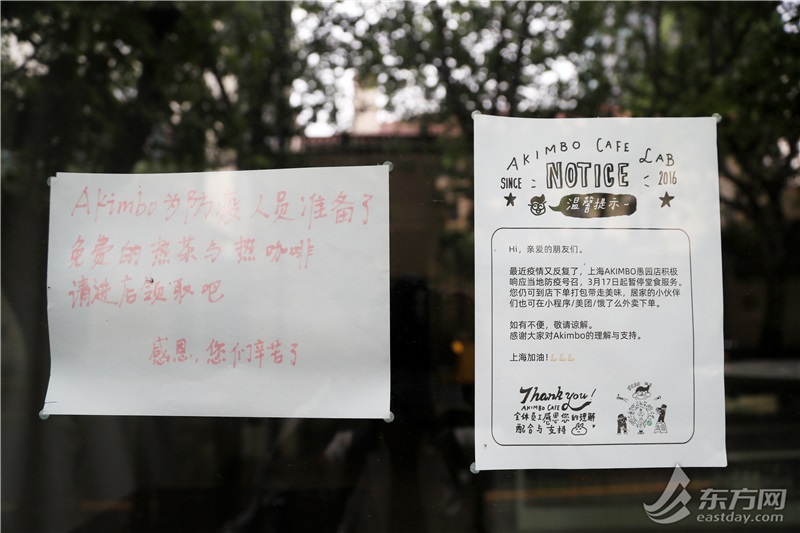 Akimbo为防疫人员准备了
免费的热茶与热咖啡
请进店领取吧
感恩,您们辛苦了
AKIMBO CAFE LAB
SINCE NOTICE 2016
温馨提示
Hi,亲爱的朋友们。
最近疫情又反复了,上海AKIMBO愚园店积极
响应当地防疫号召,3月17日起暂停堂食服务。
您仍可到店下单打包带走美味,居家的小伙伴
们也可在小程序/美团/饿了么外卖下单。
如有不便,敬请谅解。
感谢大家对Akimbo的理解与支持。
上海加油!💪💪💪
Thank you!
AKIMBO CAFE
全体员工感恩您的理解
配合与支持
东方网
eastday.com